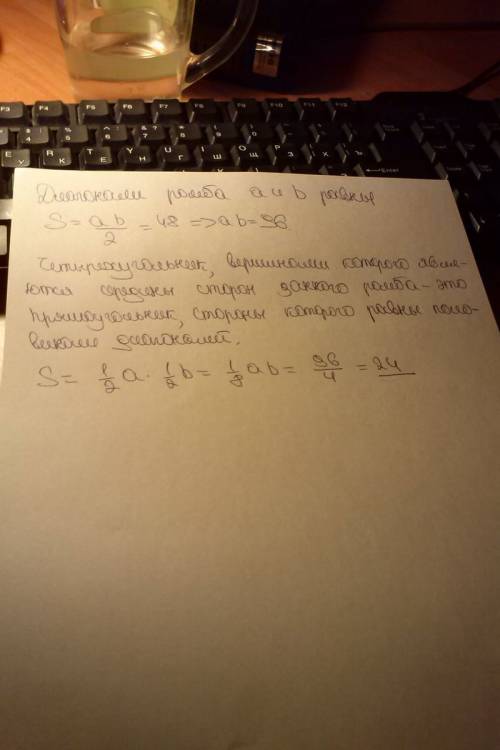 F3 F4 F5 F6 F7 F8 F9 F10 F11 F12
Диагонали ромба a и b равны
S = ab/2 = 48 => ab = 96
Четырехугольник, вершинами которого явля-
ются середины сторон данного ромба - это
прямоугольник, стороны которого равны поло-
винам диагоналей.
S = 1/2 a · 1/2 b = 1/8 ab = 96/4 = 24